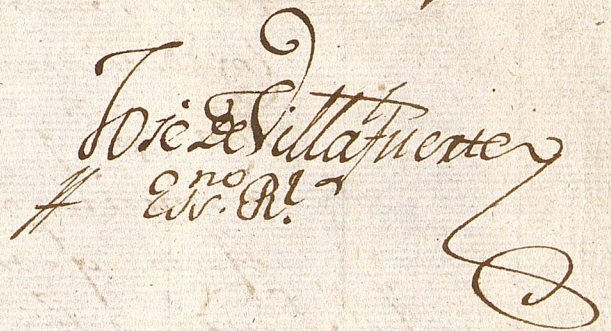 José de Villafuerte
Essno. Rl